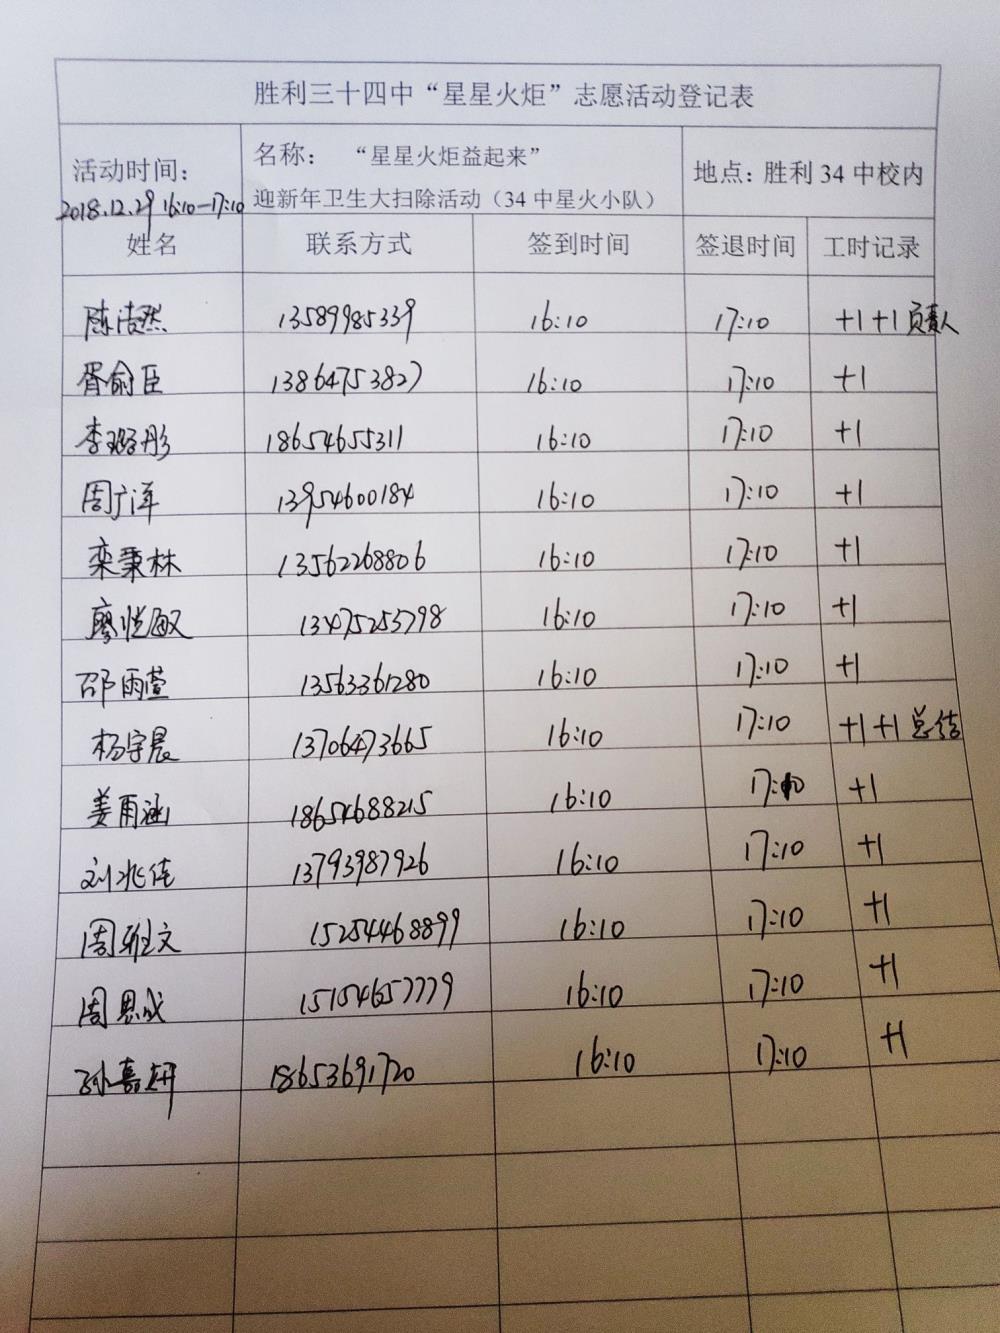 胜利三十四中“星星火炬”志愿活动登记表
活动时间：
2018.12.29 16:10—17:10
名称： “星星火炬益起来”
迎新年卫生大扫除活动（34中星火小队）
地点：胜利34中校内
姓名 联系方式 签到时间 签退时间 工时记录
陈洁然 13589985339 16:10 17:10 +1 +1 负责人
胥俞臣 13864753827 16:10 17:10 +1
李璐彤 18654655311 16:10 17:10 +1
周广洋 13954600184 16:10 17:10 +1
栾秉林 13562268806 16:10 17:10 +1
廖悦 13475253798 16:10 17:10 +1
邵雨萱 13563361280 16:10 17:10 +1
杨宇晨 13706473665 16:10 17:10 +1 +1 总结
姜雨涵 18654688215 16:10 17:10 +1
刘兆佳 13793987926 16:10 17:10 +1
周雅文 15254468899 16:10 17:10 +1
周恩成 15154657779 16:10 17:10 +1
孙嘉妍 18653691720 16:10 17:10 +1